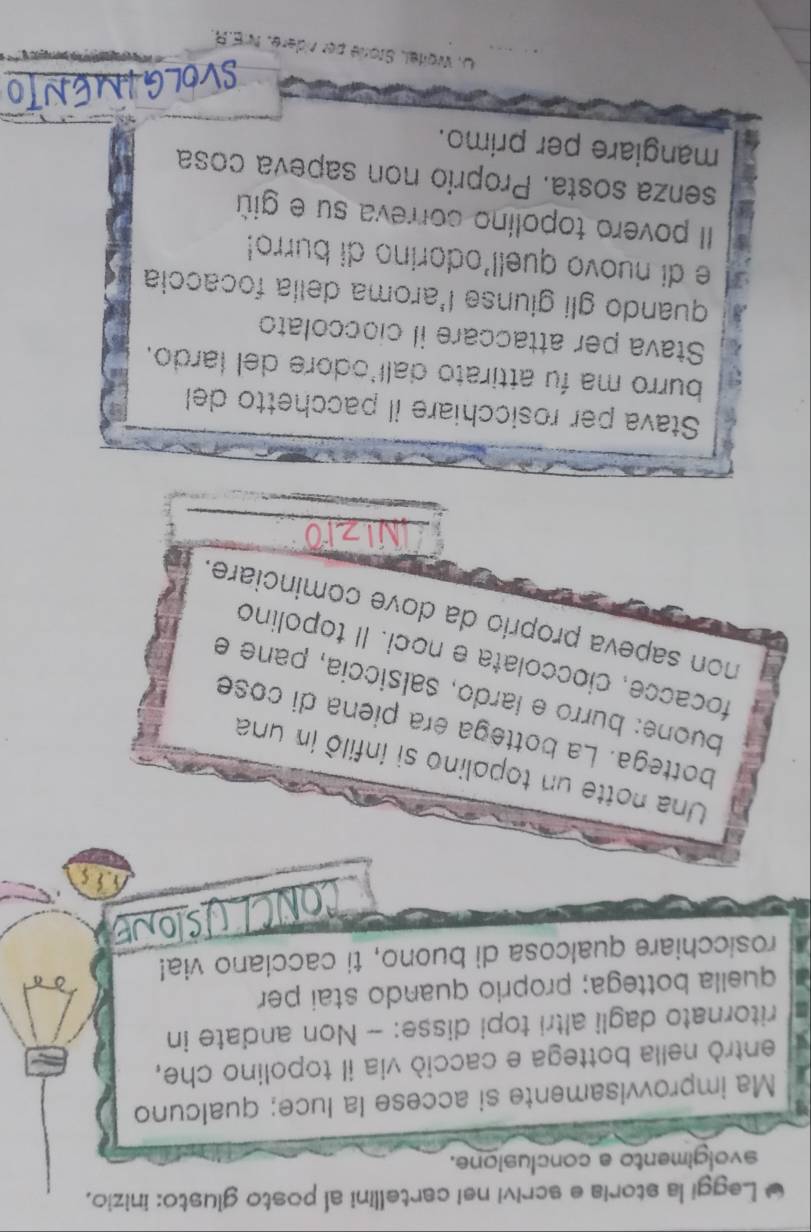 Leggi la storia e scrivi nei cartellini al posto giusto: inizio,
svolgimento e conclusione.
Ma improvvisamente si accese la luce; qualcuno
entrò nella bottega e cacciò via il topolino che,
ritornato dagli altri topi disse: - Non andate in
quella bottega; proprio quando stai per
rosicchiare qualcosa di buono, ti cacciano via!
CONCLUSIONE
Una notte un topolino si infilò in una
bottega. La bottega era piena di cose
buone: burro e lardo, salsiccia, pane e
focacce, cioccolata e noci. Il topolino
non sapeva proprio da dove cominciare.
INIZIO
Stava per rosicchiare il pacchetto del
burro ma fu attirato dall'odore del lardo.
Stava per attaccare il cioccolato
quando gli giunse l'aroma della focaccia
e di nuovo quell'odorino di burro!
Il povero topolino correva su e giù
senza sosta. Proprio non sapeva cosa
mangiare per primo.
SVOLGIMENTO
Storie per ridere, N.E.R.